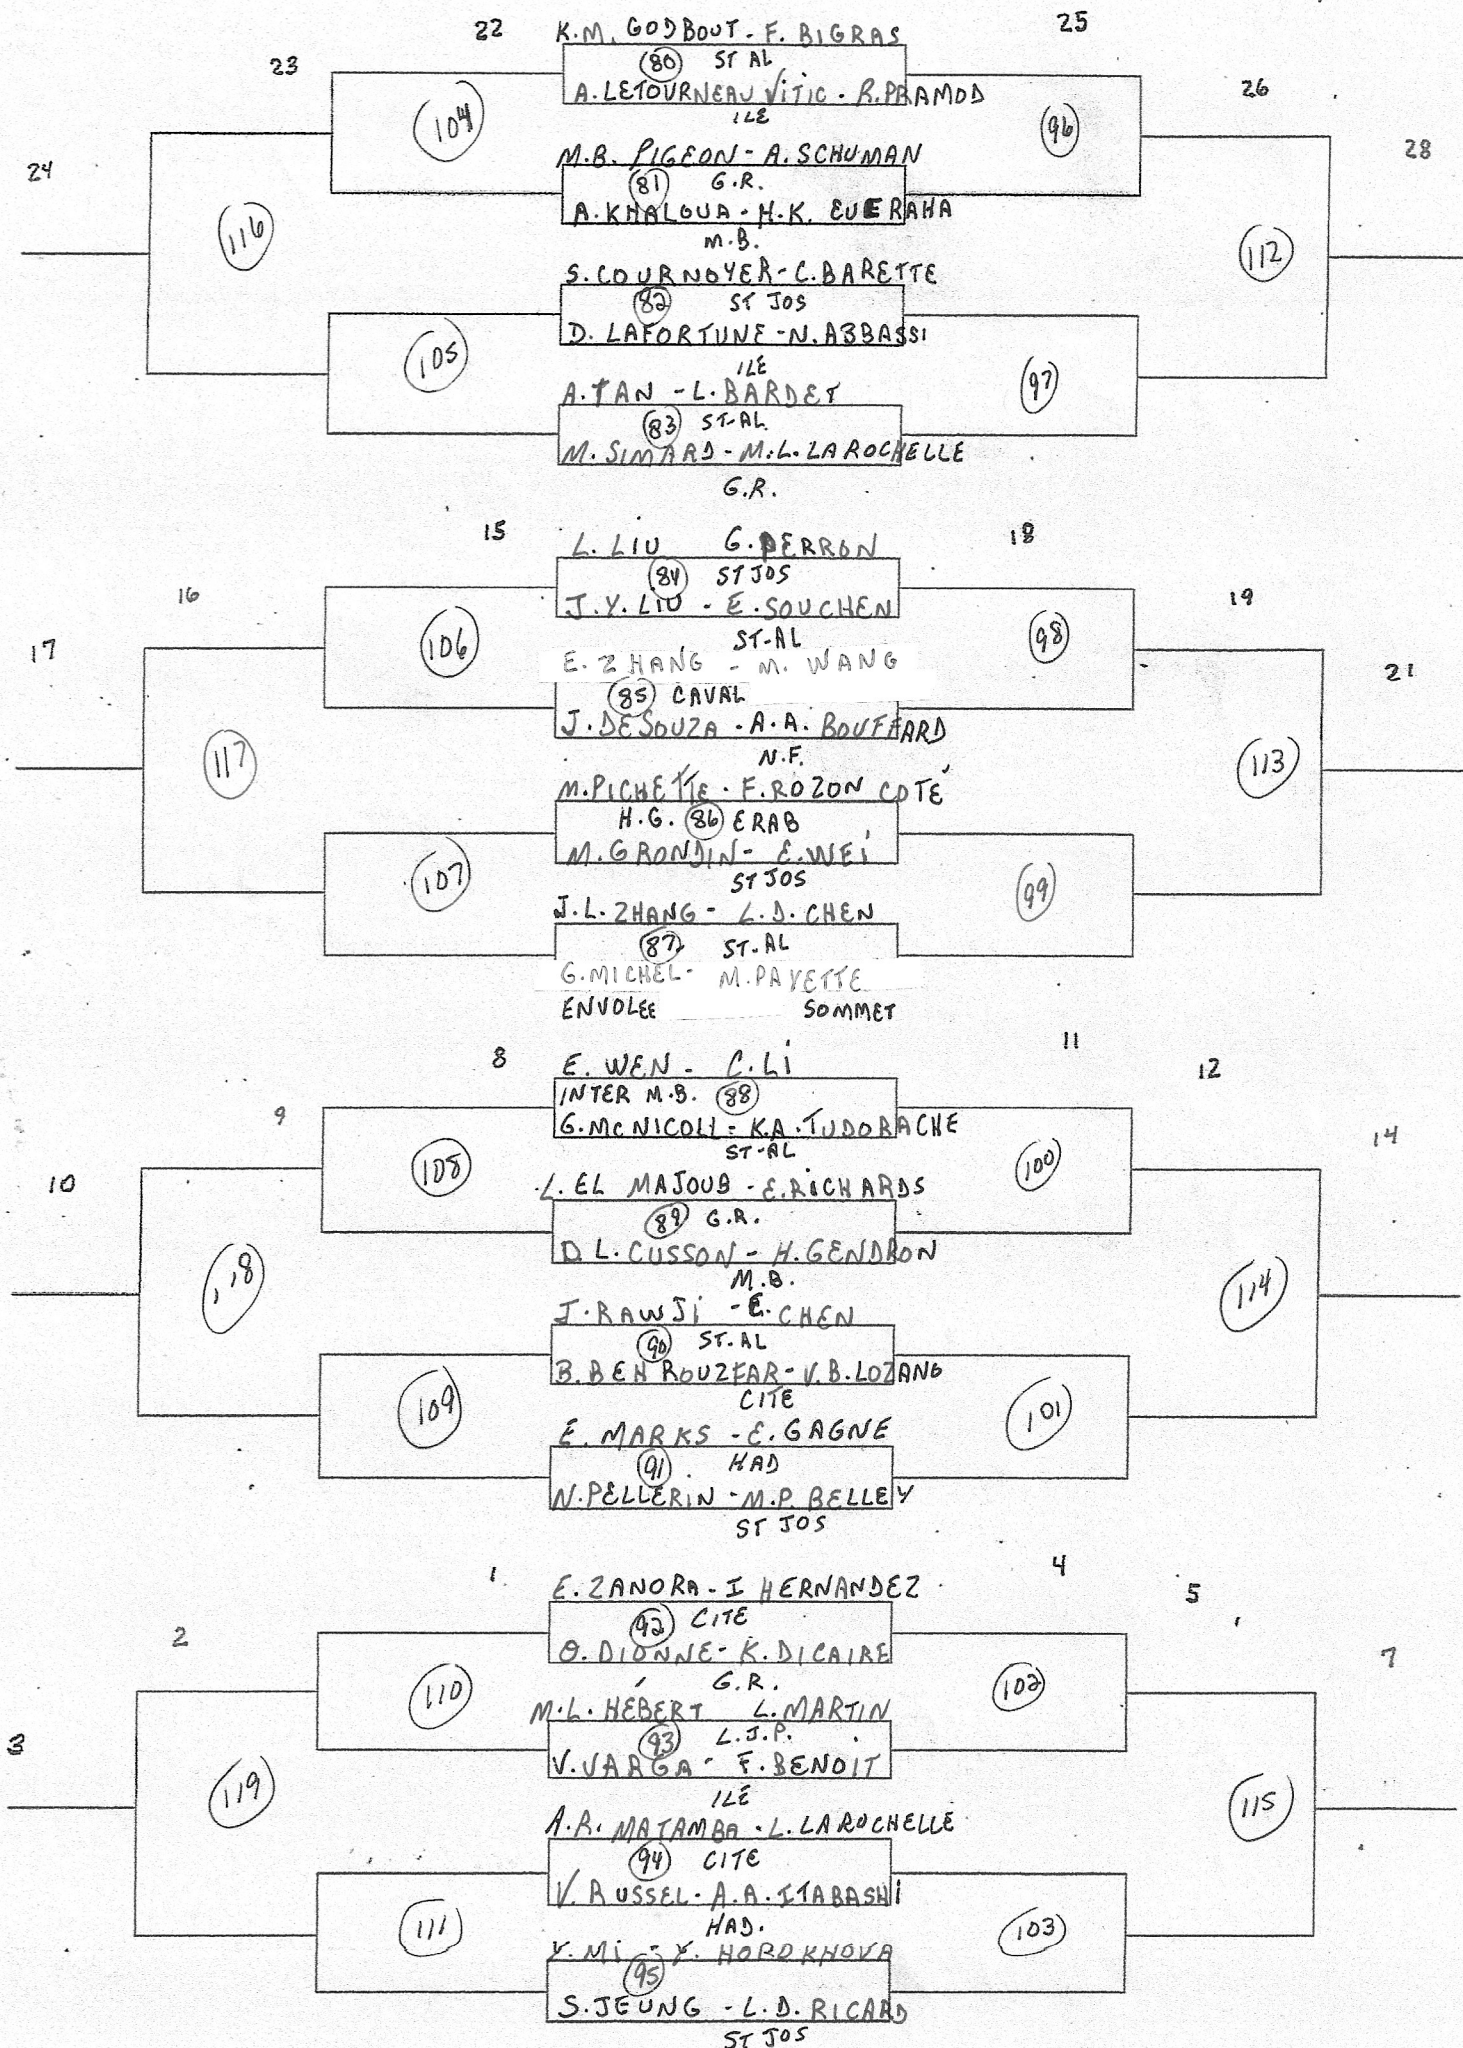 22 K.M. GODBOUT - F. BIGRAS 25
23 80 ST AL 26
A. LETOURNEAU VITIC - R. PRAMOD
104 ILE 96
24 M.B. PIGEON - A. SCHUMAN 28
81 G.R.
A. KHALOUA - H.K. EUERAHA
116 M.B. 112
S. COURNOYER - C. BARETTE
82 ST JOS
D. LAFORTUNE - N. ABBASSI
105 ILE 97
A. TAN - L. BARDET
83 ST-AL
M. SIMARD - M.L. LAROCHELLE
G.R.
15 L. LIU G. PERRON 18
84 ST JOS
16 J.Y. LIU - E. SOUCHEN 19
106 ST-AL 98
17 E. ZHANG - M. WANG 21
85 CAVAL
J. DESOUZA - A.A. BOUFFARD
117 N.F. 113
M. PICHETTE - F. ROZON COTÉ
H.G. 86 ERAB
M. GRONDIN - E. WEI
107 ST JOS 99
J.L. ZHANG - L.D. CHEN
87 ST-AL
G. MICHEL - M. PAYETTE
ENVOLEE SOMMET
8 E. WEN - C. LI 11
INTER M.B. 88 12
9 G. MCNICOLL - K.A. TUDORACHE 14
108 ST-AL 100
10 L. EL MAJOUB - E. RICHARDS
89 G.R.
D.L. CUSSON - H. GENDRON
118 M.B. 114
J. RAWJI - E. CHEN
90 ST-AL
B. BEH ROUZFAR - V.B. LOZANO
109 CITE 101
E. MARKS - E. GAGNE
91 HAD
N. PELLERIN - M.P. BELLEY
ST JOS
1 E. ZANORA - I HERNANDEZ 4
92 CITE 5
2 O. DIONNE - K. DICAIRE 7
110 G.R. 102
M.L. HÉBERT L. MARTIN
3 93 L.J.P.
V. VARGA - F. BENOIT
119 ILE 115
A.R. MATAMBA - L. LAROCHELLE
94 CITE
V. RUSSEL - A.A. ITABASHI
111 HAD. 103
Y. MI - Y. HOROKHOVA
95
S. JEUNG - L.D. RICARD
ST JOS